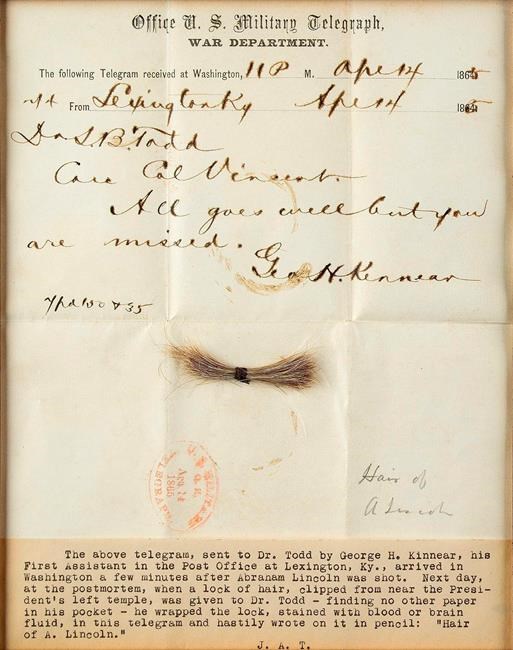 Office U. S. Military Telegraph,
WAR DEPARTMENT.
The following Telegram received at Washington, 11 P M. Apr 14 1865
From Lexington Ky Apr 14 1865
Dr L B. Todd
Care Col Vincent.
All goes well but you
are missed.
Geo. H. Kinnear
Hair of
A Lincoln
The above telegram, sent to Dr. Todd by George H. Kinnear, his
First Assistant in the Post Office at Lexington, Ky., arrived in
Washington a few minutes after Abraham Lincoln was shot. Next day,
at the postmortem, when a lock of hair, clipped from near the Presi-
dent's left temple, was given to Dr. Todd - finding no other paper
in his pocket - he wrapped the lock, stained with blood or brain
fluid, in this telegram and hastily wrote on it in pencil: "Hair
of A. Lincoln."
J. A. T.